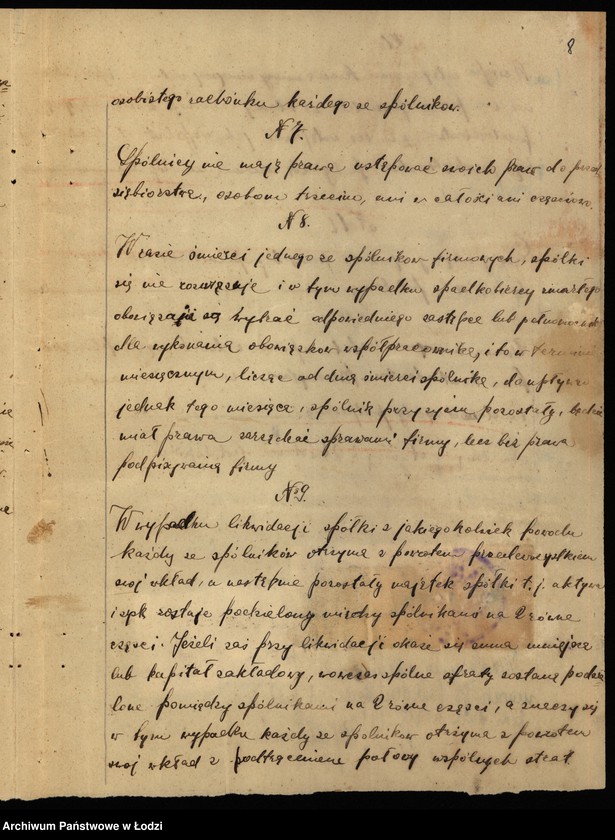 8
osobistego rachunku każdego ze spólników.
N 7.
Spólnicy nie mają prawa ustępować swoich praw do przed
siębiorstwa, osobom trzecim, ani w całości ani częściowo.
N 8.
W razie śmierci jednego ze spólników firmowych, spółki
się nie rozwiązuje i w tym wypadku spadkobiercy zmarłego
obowiązają są wybrać odpowiedniego zastępcę lub
dla wykonania obowiązków współpracownika, i to w terminie
miesięcznym, licząc od dnia śmierci spólnika, do upływu
jednak tego miesiąca, spólnik przy życiu pozostały, będzie
miał prawa zarządzać sprawami firmy, lecz bez prawa
podpisywania firmy
No 9.
W wypadku likwidacji spółki z jakiegokolwiek powodu
każdy ze spólników otrzyma z powrotem przedewszystkiem
swój wkład, a następnie pozostały majątek spółki t. j. aktywa
i zysk zostaje podzielony między spólnikami na 2 równe
części. Jeżeli zaś przy likwidacji okaże się suma mniejsza
lub kapitał zakładowy, wówczas spólne straty zostaną podzie
lone pomiędzy spólnikami na 2 równe części, a znaczy się
w tym wypadku każdy ze spólników otrzyma z powrotem
swój wkład z podtrąceniem połowy wspólnych strat
Archiwum Państwowe w Łodzi